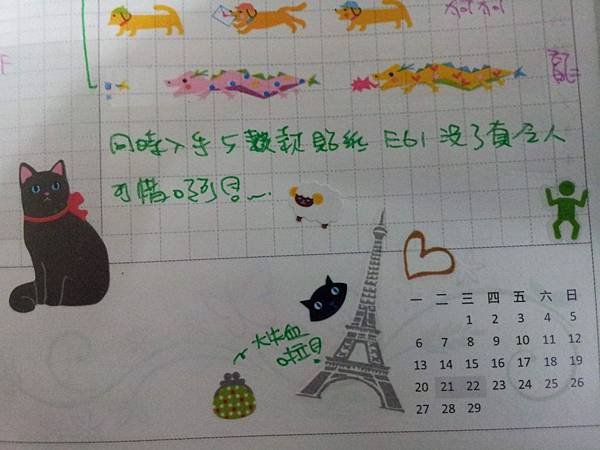 狗狗
龍
同時入手5數款貼紙 E61 沒了真令人
可惜
大失血
啦貝
一 二 三 四 五 六 日
1 2 3 4 5
6 7 8 9 10 11 12
13 14 15 16 17 18 19
20 21 22 23 24 25 26
27 28 29